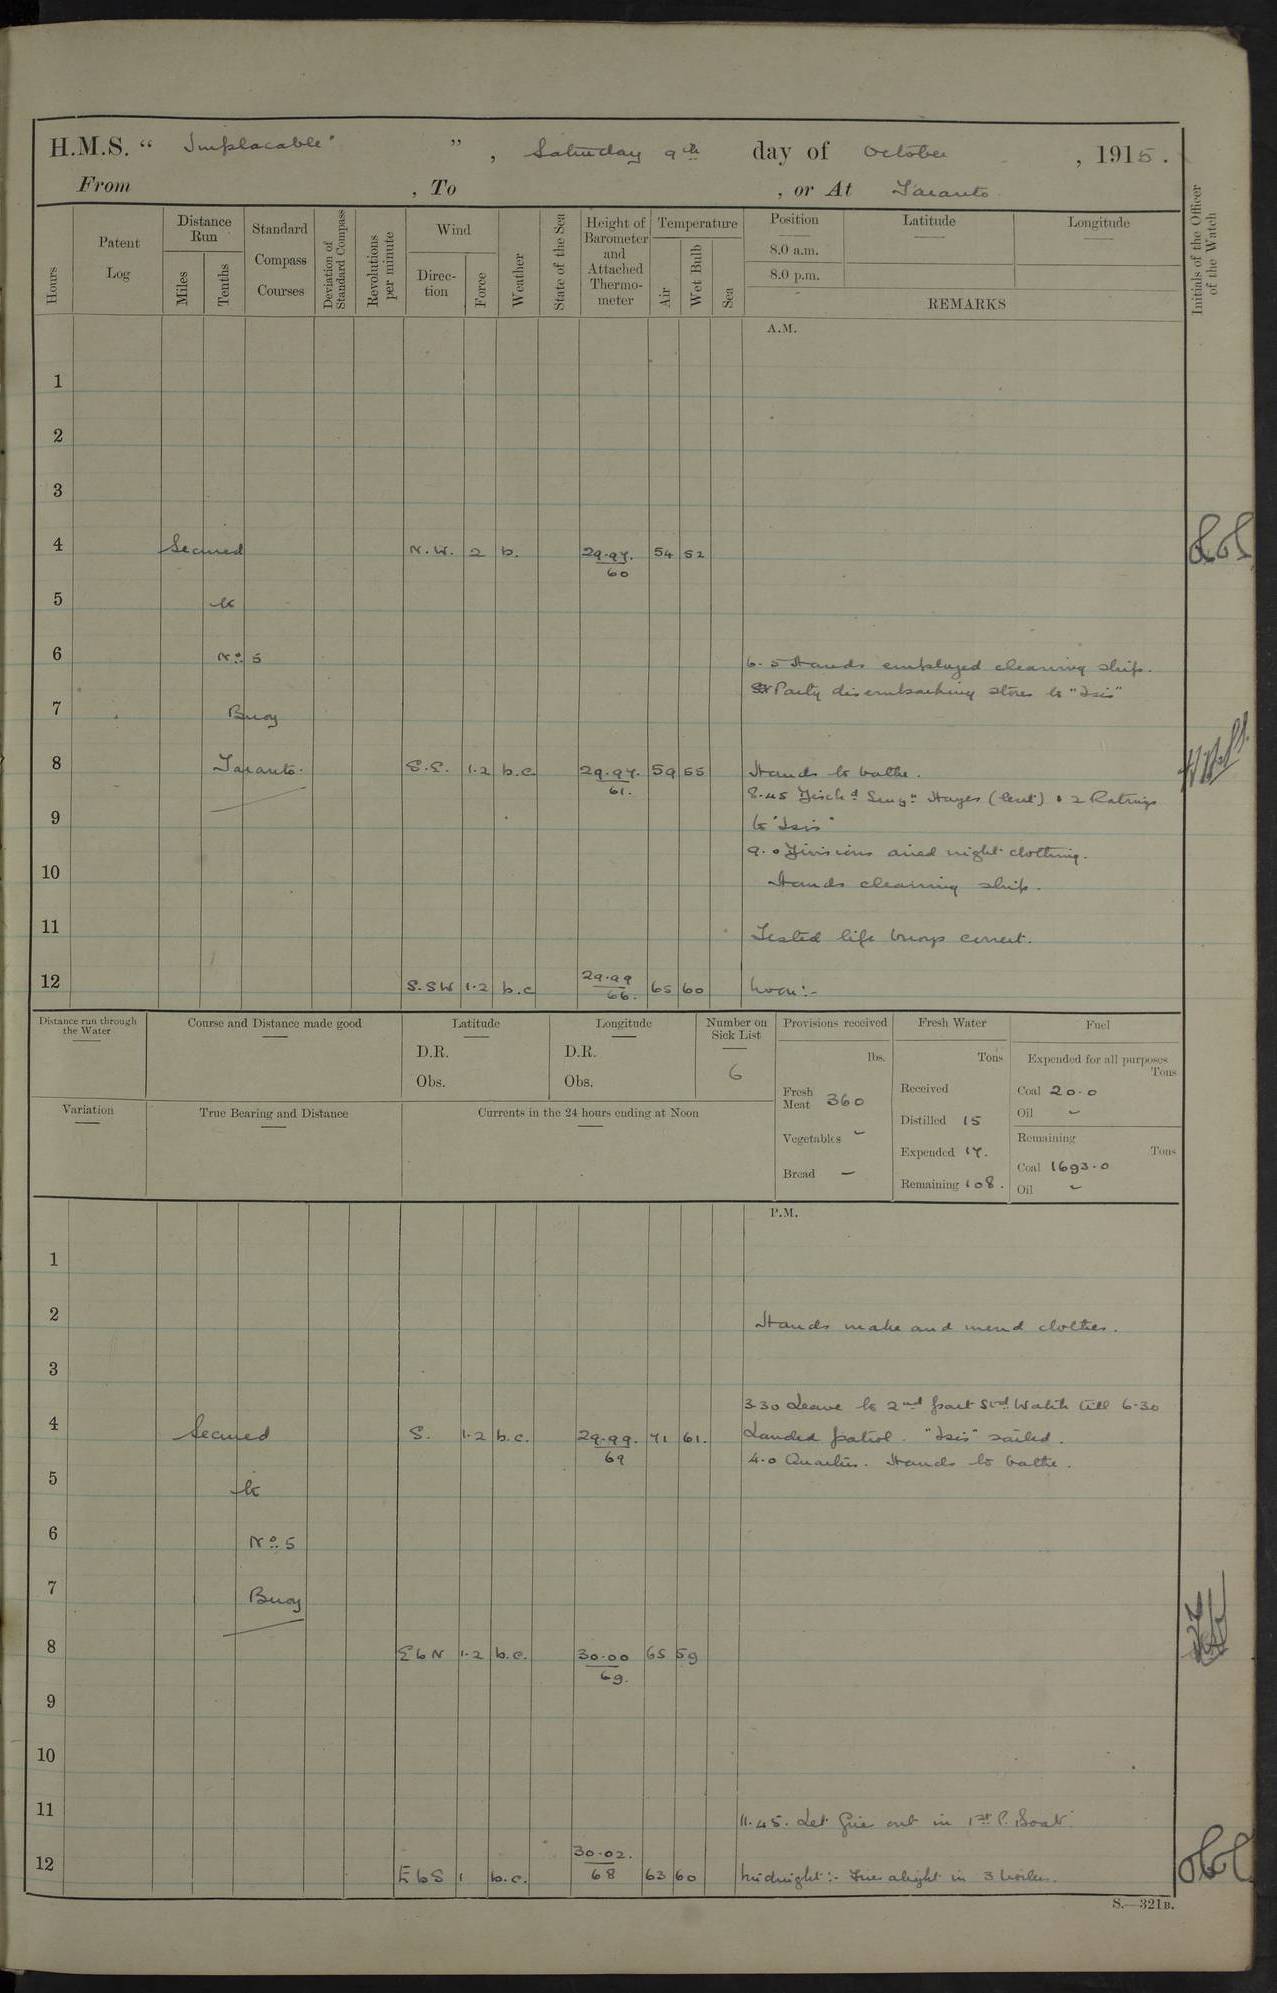 H.M.S. “ Implacable ” , Saturday 9th day of October , 1915.
From , To , or At Taranto
Hours
Patent Log
Distance Run
Miles
Tenths
Standard Compass Courses
Deviation of Standard Compass
Revolutions per minute
Wind
Direction
Force
Weather
State of the Sea
Height of Barometer and Attached Thermometer
Temperature
Air
Wet Bulb
Sea
Position
8.0 a.m.
8.0 p.m.
Latitude
Longitude
REMARKS
Initials of the Officer of the Watch
A.M.
1
2
3
4 Secured N.W. 2 b. 29.97. 54 52
60
5 to
6 No 5 6.5 Hands employed cleaning ship.
Party disembarking stores to "Isis"
7 Buoy
8 Taranto. S.E. 1.2 b.c. 29.97. 59 55 Hands to bathe.
61.
8.45 Disch'd Surgn Hayes (lent) & 2 Ratings
9 to "Isis"
9.0 Divisions aired night clothing.
10 Hands cleaning ship.
11 Tested life buoys correct.
12 S.SW 1.2 b.c 29.99 65 60 Noon:-
66.
Distance run through the Water
Course and Distance made good
Latitude
D.R.
Obs.
Longitude
D.R.
Obs.
Number on Sick List
6
Provisions received
lbs.
Fresh Meat 360
Vegetables -
Bread -
Fresh Water
Tons
Received
Distilled 15
Expended 17.
Remaining 108.
Fuel
Expended for all purposes
Tons
Coal 20.0
Oil -
Remaining
Tons
Coal 1693.0
Oil -
Variation
True Bearing and Distance
Currents in the 24 hours ending at Noon
P.M.
1
2 Hands make and mend clothes.
3
3.30 Leave to 2nd part Stbd Watch till 6.30
4 Secured S. 1.2 b.c. 29.99. 71 61. Landed patrol. "Isis" sailed.
69
4.0 Quarters. Hands to bathe.
5 to
6 No 5
7 Buoy
8 EbN 1.2 b.c. 30.00 65 59
69.
9
10
11 11.45. Let fire out in 1st P. Boat.
12 EbS 1 b.c. 30.02. 63 60 Midnight:- Fires alight in 3 boilers.
68
S.—321B.